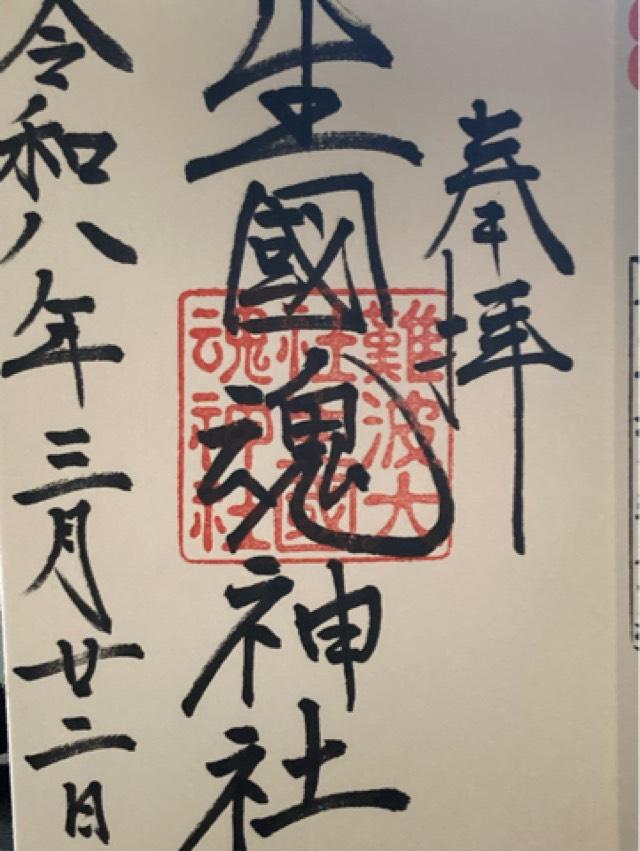 奉拝
生國魂神社
難波大
社生國
魂神社
令和八年三月廿二日